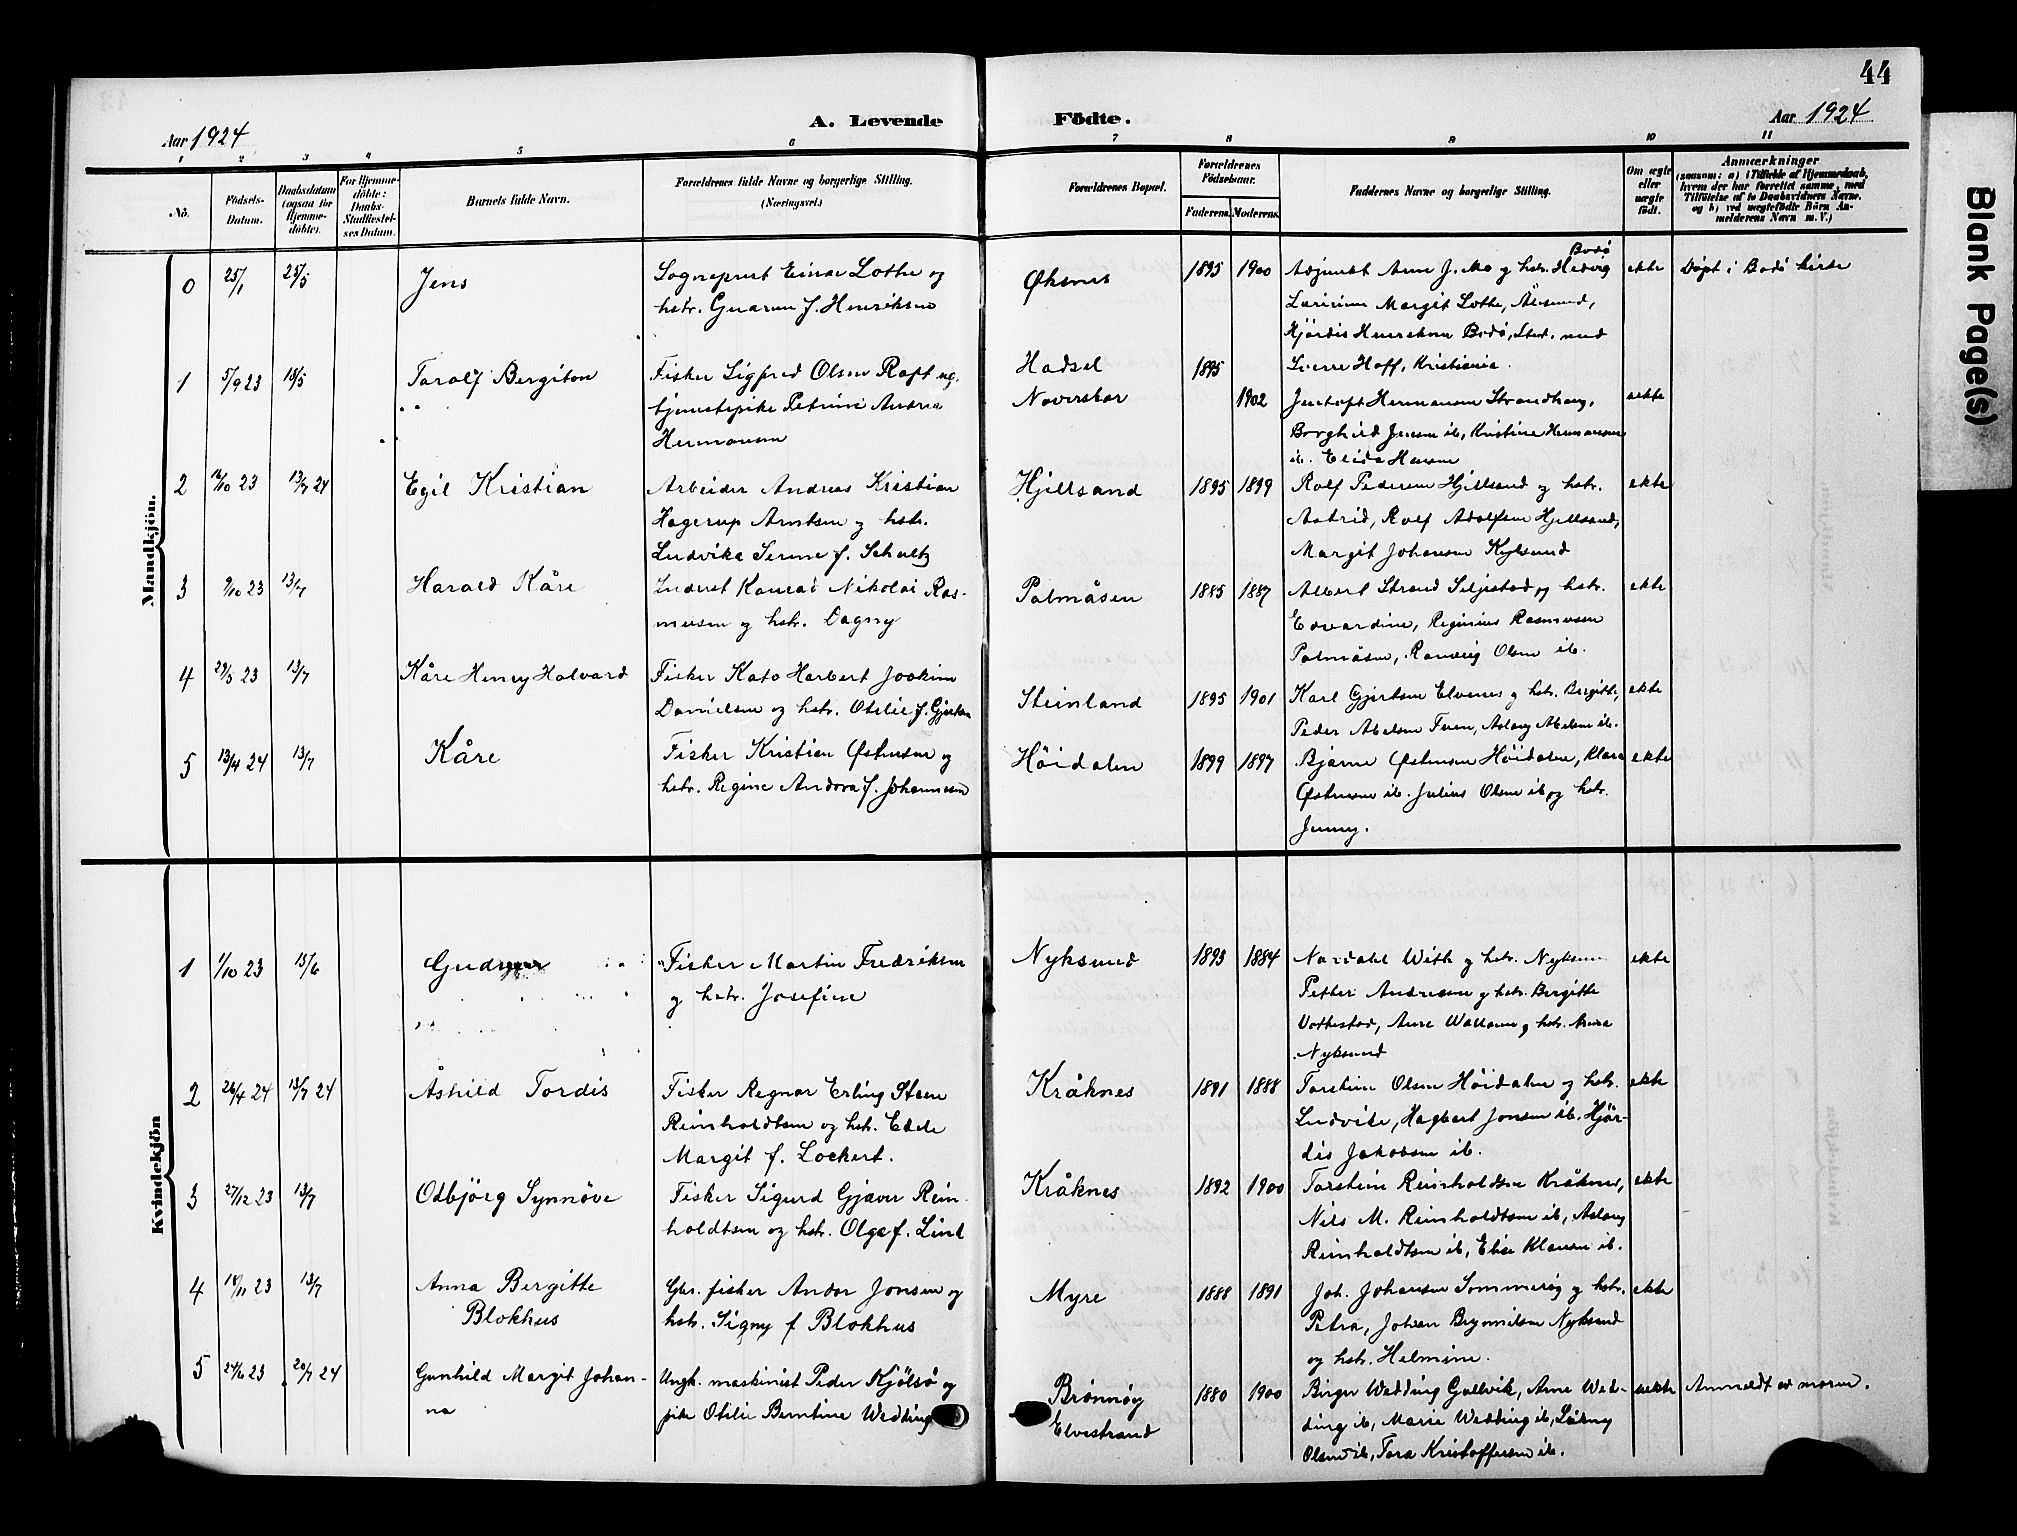 44
Aar 1924
A. Levende Fødte.
Aar 1924
1 2 3 4 5 6 7 8 9 10 11
No.
Fødsels-
Datum.
Daabsdatum
(ogsaa for
Hjemme-
døbte).
For Hjemme-
døbte:
Daabs-
Stadfæstel-
ses Datum.
Barnets fulde Navn.
Forældrenes fulde Navne og borgerlige Stilling.
(Næringsvei.)
Forældrenes Bopæl.
Forældrenes
Fødselsaar.
Faderens. Moderens.
Faddernes Navne og borgerlige Stilling.
Om ægte
eller
uægte
født.
Anmærkninger
(saasom: a) i Tilfælde af Hjemmedaab,
hvem der har forrettet samme, med
Tilføielse af to Daabsvidners Navne,
og b) ved uægtefødte Børn An-
melderens Navn m. V.)
Mandkjön.
0 25/1 25/5 Jens
Sogneprest Einar Lothe og
hstr. Gudrun f. Henriksen
Øksnes 1895 1900
Adjunkt Arne J. Mo og hstr. Hedvig Bodø
Margit Lothe, Ålesund,
Hjördis Henriksen Bodø, Stud. med
Sverre Hoff, Kristiania.
ekte
Døpt i Bodø kirke
1 5/9 23 18/5 Toralf Bergiton
Fisker Sigfred Olsen Raft ug.
tjenestepike Petrine Andrea
Hermansen
Hadsel 1895
1902
Jentoft Hermansen Strandhaug,
Borghild Jensen ib, Kristine Hermansen
ib. Elida Hansen
uekte
2 /10 23 13/7 24 Egil Kristian
Arbeider Andreas Kristian
Hagerup Arntsen og hstr.
Ludvika Serine f. Schultz
Hjellsand 1895 1899
Rolf Pedersen Hjellsand og hstr.
Astrid, Rolf Adolfsen Hjellsand,
Margit Johansen
ekte
3 9/10 23 13/7 Harald Kåre
Inderst Konrad Nikolai Ras-
mussen og hstr. Dagny
Palmåsen 1885 1887
Albert Strand Siljestad og hstr.
Edvardine, Reginius Rasmussen
Palmåsen, Ranveig Olsen ib.
ekte
4 29/3 23 13/7 Kåre Henry Halvard
Fisker Kato Harbert Joakim
Danielsen og hstr. Otilie f. Gjertsen
Steinland 1895 1901
Karl Gjertsen Elvenes og hstr. Bergitte,
Peder Abelsen Føren, Aslaug Abelsen ib.
ekte
5 13/4 24 13/7 Kåre
Fisker Kristian Østensen og
hstr. Regine Andora f. Johannesen
Höidalen 1899 1897
Bjarne Østensen Höidalen, Klara
Østensen ib. Julius Olsen ib og hstr.
Jenny.
ekte
Kvindekjön
1 1/10 23 15/6
Fisker Martin Fredriksen
og hstr. Josefine
Nyksund 1893 1884
Nordahl With og hstr. Nyksund
Petter Andreassen og hstr. Bergitte
Vottestad, Arne og hstr.
Nyksund
ekte
2 26/4 24 13/7 24 Åshild Tordis
Fisker Regnar Erling Steen
Reinholdtsen og hstr. Edele
Margit f. Lockert.
Kråknes 1891 1888
Torstein Olsen Höidalen og hstr.
Ludvike, Hagbart Jonsen ib. Hjör-
dis Jakobsen ib.
ekte
3 27/12 23 13/7 Odbjörg Synnöve
Fisker Sigurd Gjæver Rein-
holdtsen og hstr. Olga f. Lind
Kråknes 1892 1900
Torstein Reinholdtsen Kråknes,
Nils M. Reinholdtsen ib, Aslaug
Reinholdtsen ib, Elise Klausen ib.
ekte
4 18/11 23 13/7 Anna Bergitte
Blokhus
Gbr. fisker Andor Jonsen og
hstr. Signy f Blokhus
Myre 1888 1891
Joh. Johansen Sommeröy og hstr.
Petra, Johan Brynnilsen Nyksund
og hstr. Helmine.
ekte
5 24/6 23 20/7 24 Gunhild Margit Johan-
na
Ungk. maskinist Peder Kjölsö og
pike Otelie Berntine Wedding
Brønnøy
Elvestrand
1880 1900
Birger Wedding Gullvik, Arne Wed-
ding ib, Marie Wedding ib,
Olsen ib, Tora Kristoffersen ib.
uekte
Anmeldt av moren.
Blank Page(s)